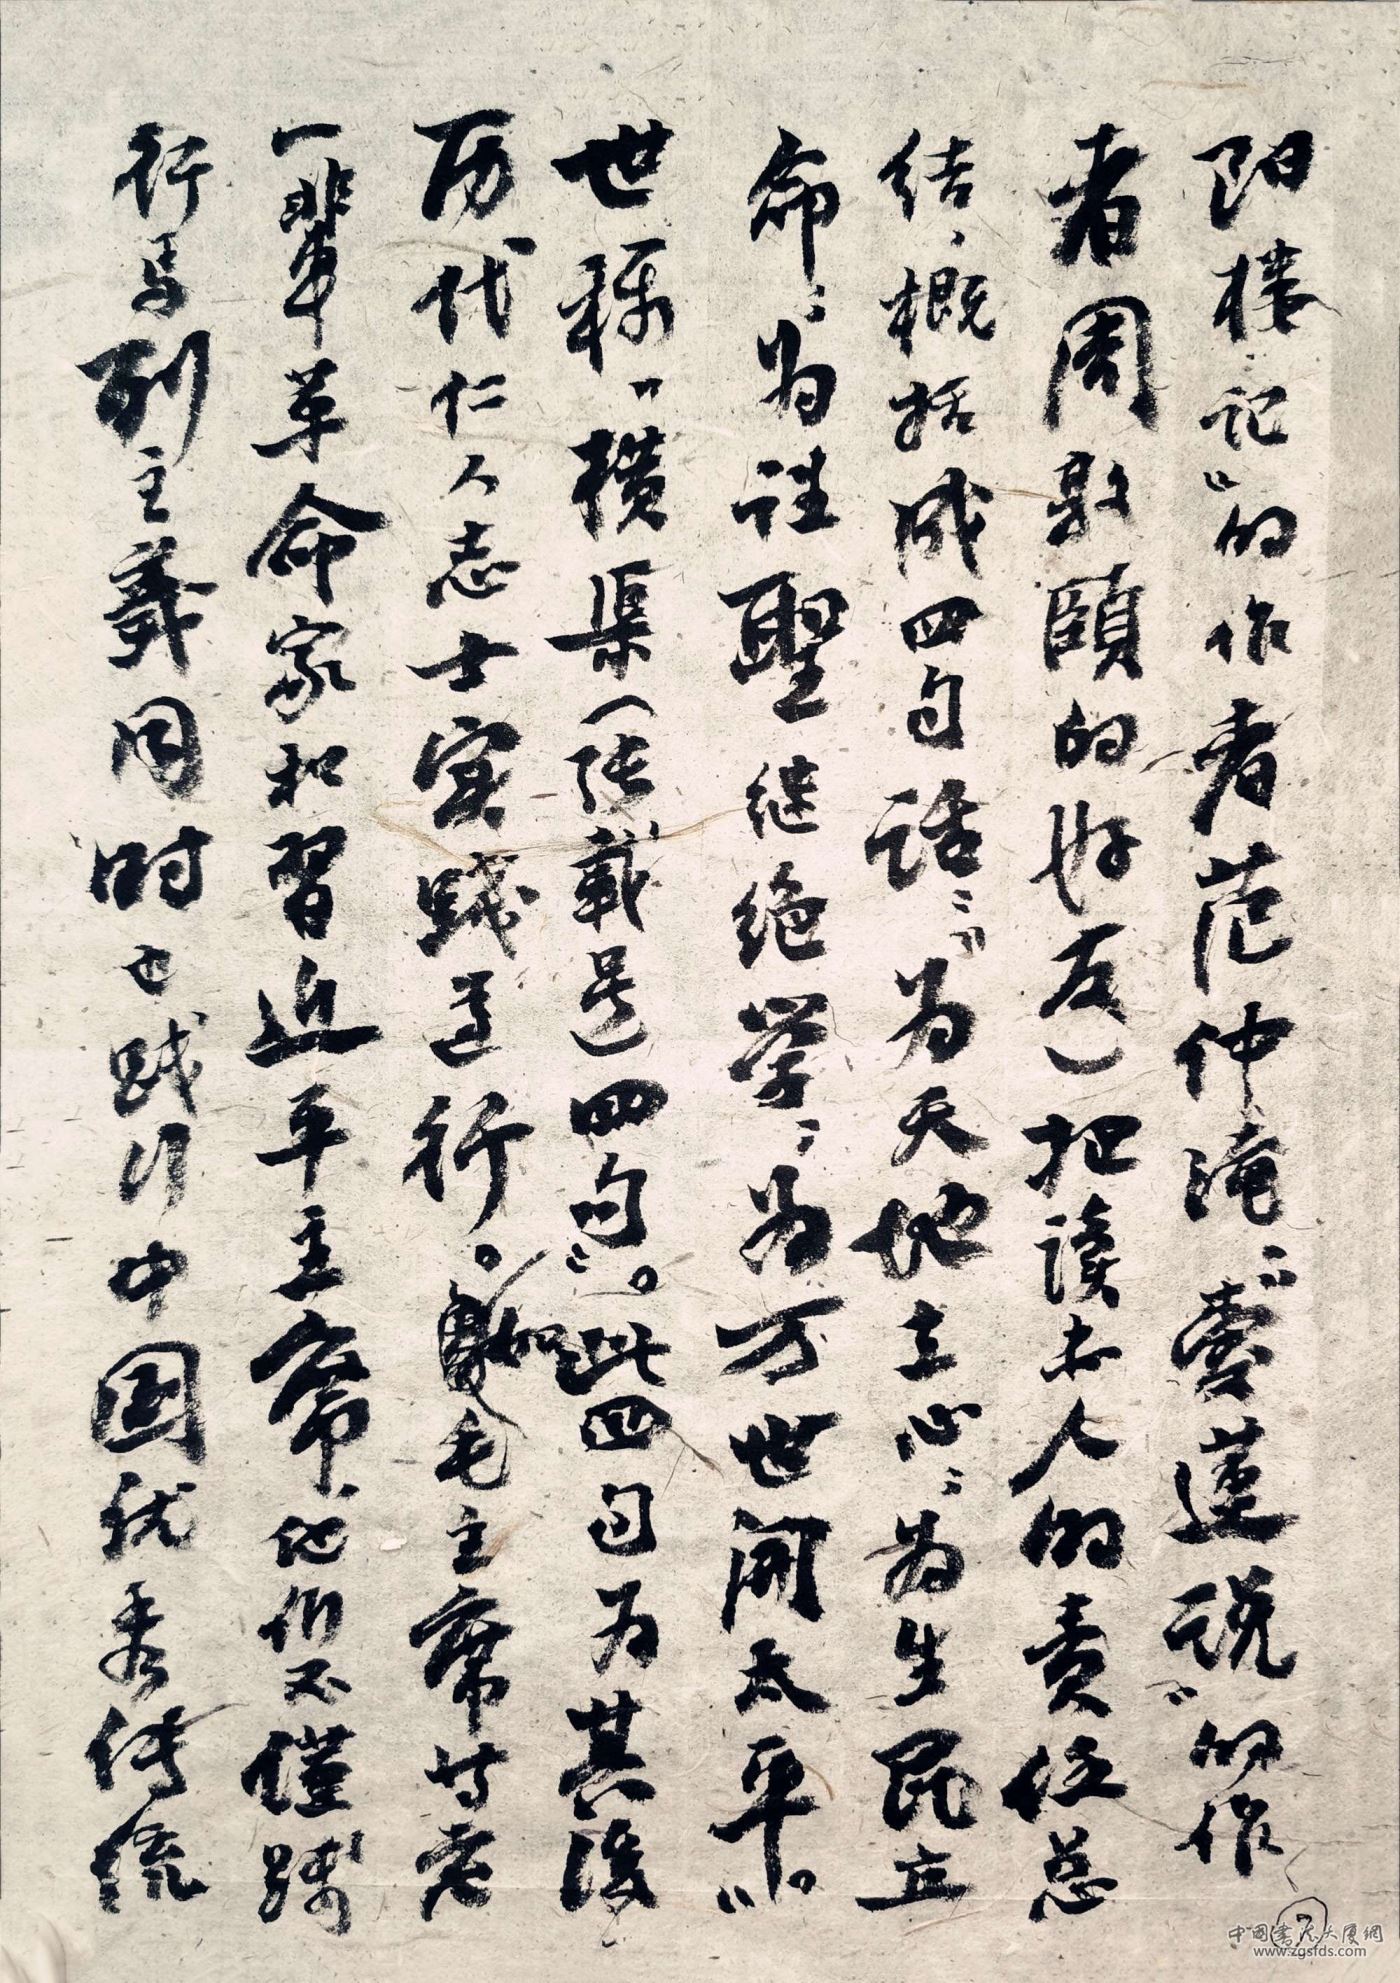 阳楼记”的作者范仲淹、“爱莲说”的作
者周敦颐的好友）把读书人的责任总
结、概括成四句话：“为天地立心；为生民立
命；为往聖继绝学；为万世開太平”。
世称“横渠（张载是）四句”。此四句为其後
历代仁人志士实践遵行。如毛主席等老
一辈革命家和習近平主席他们不僅践
行马列主義同时也践行中国优秀传统
7
中国書法大厦網
www.zgsfds.com